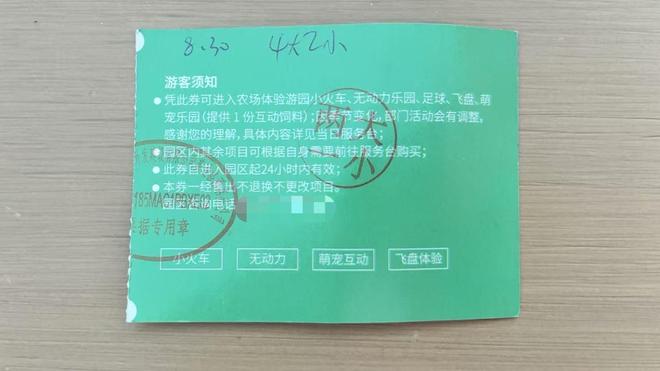 8.30 4大2小
游客须知
●凭此券可进入农场体验游园小火车、无动力乐园、足球、飞盘、萌
宠乐园(提供1份互动饲料);因季节变化,部门活动会有调整,
感谢您的理解,具体内容详见当日服务台;
●园区内其余项目可根据自身需要前往服务台购买;
●此券自进入园区起24小时内有效;
●本券一经售出不退换不更改项目。
电话
两大
一小
据专用章
小火车 无动力 萌宠互动 飞盘体验